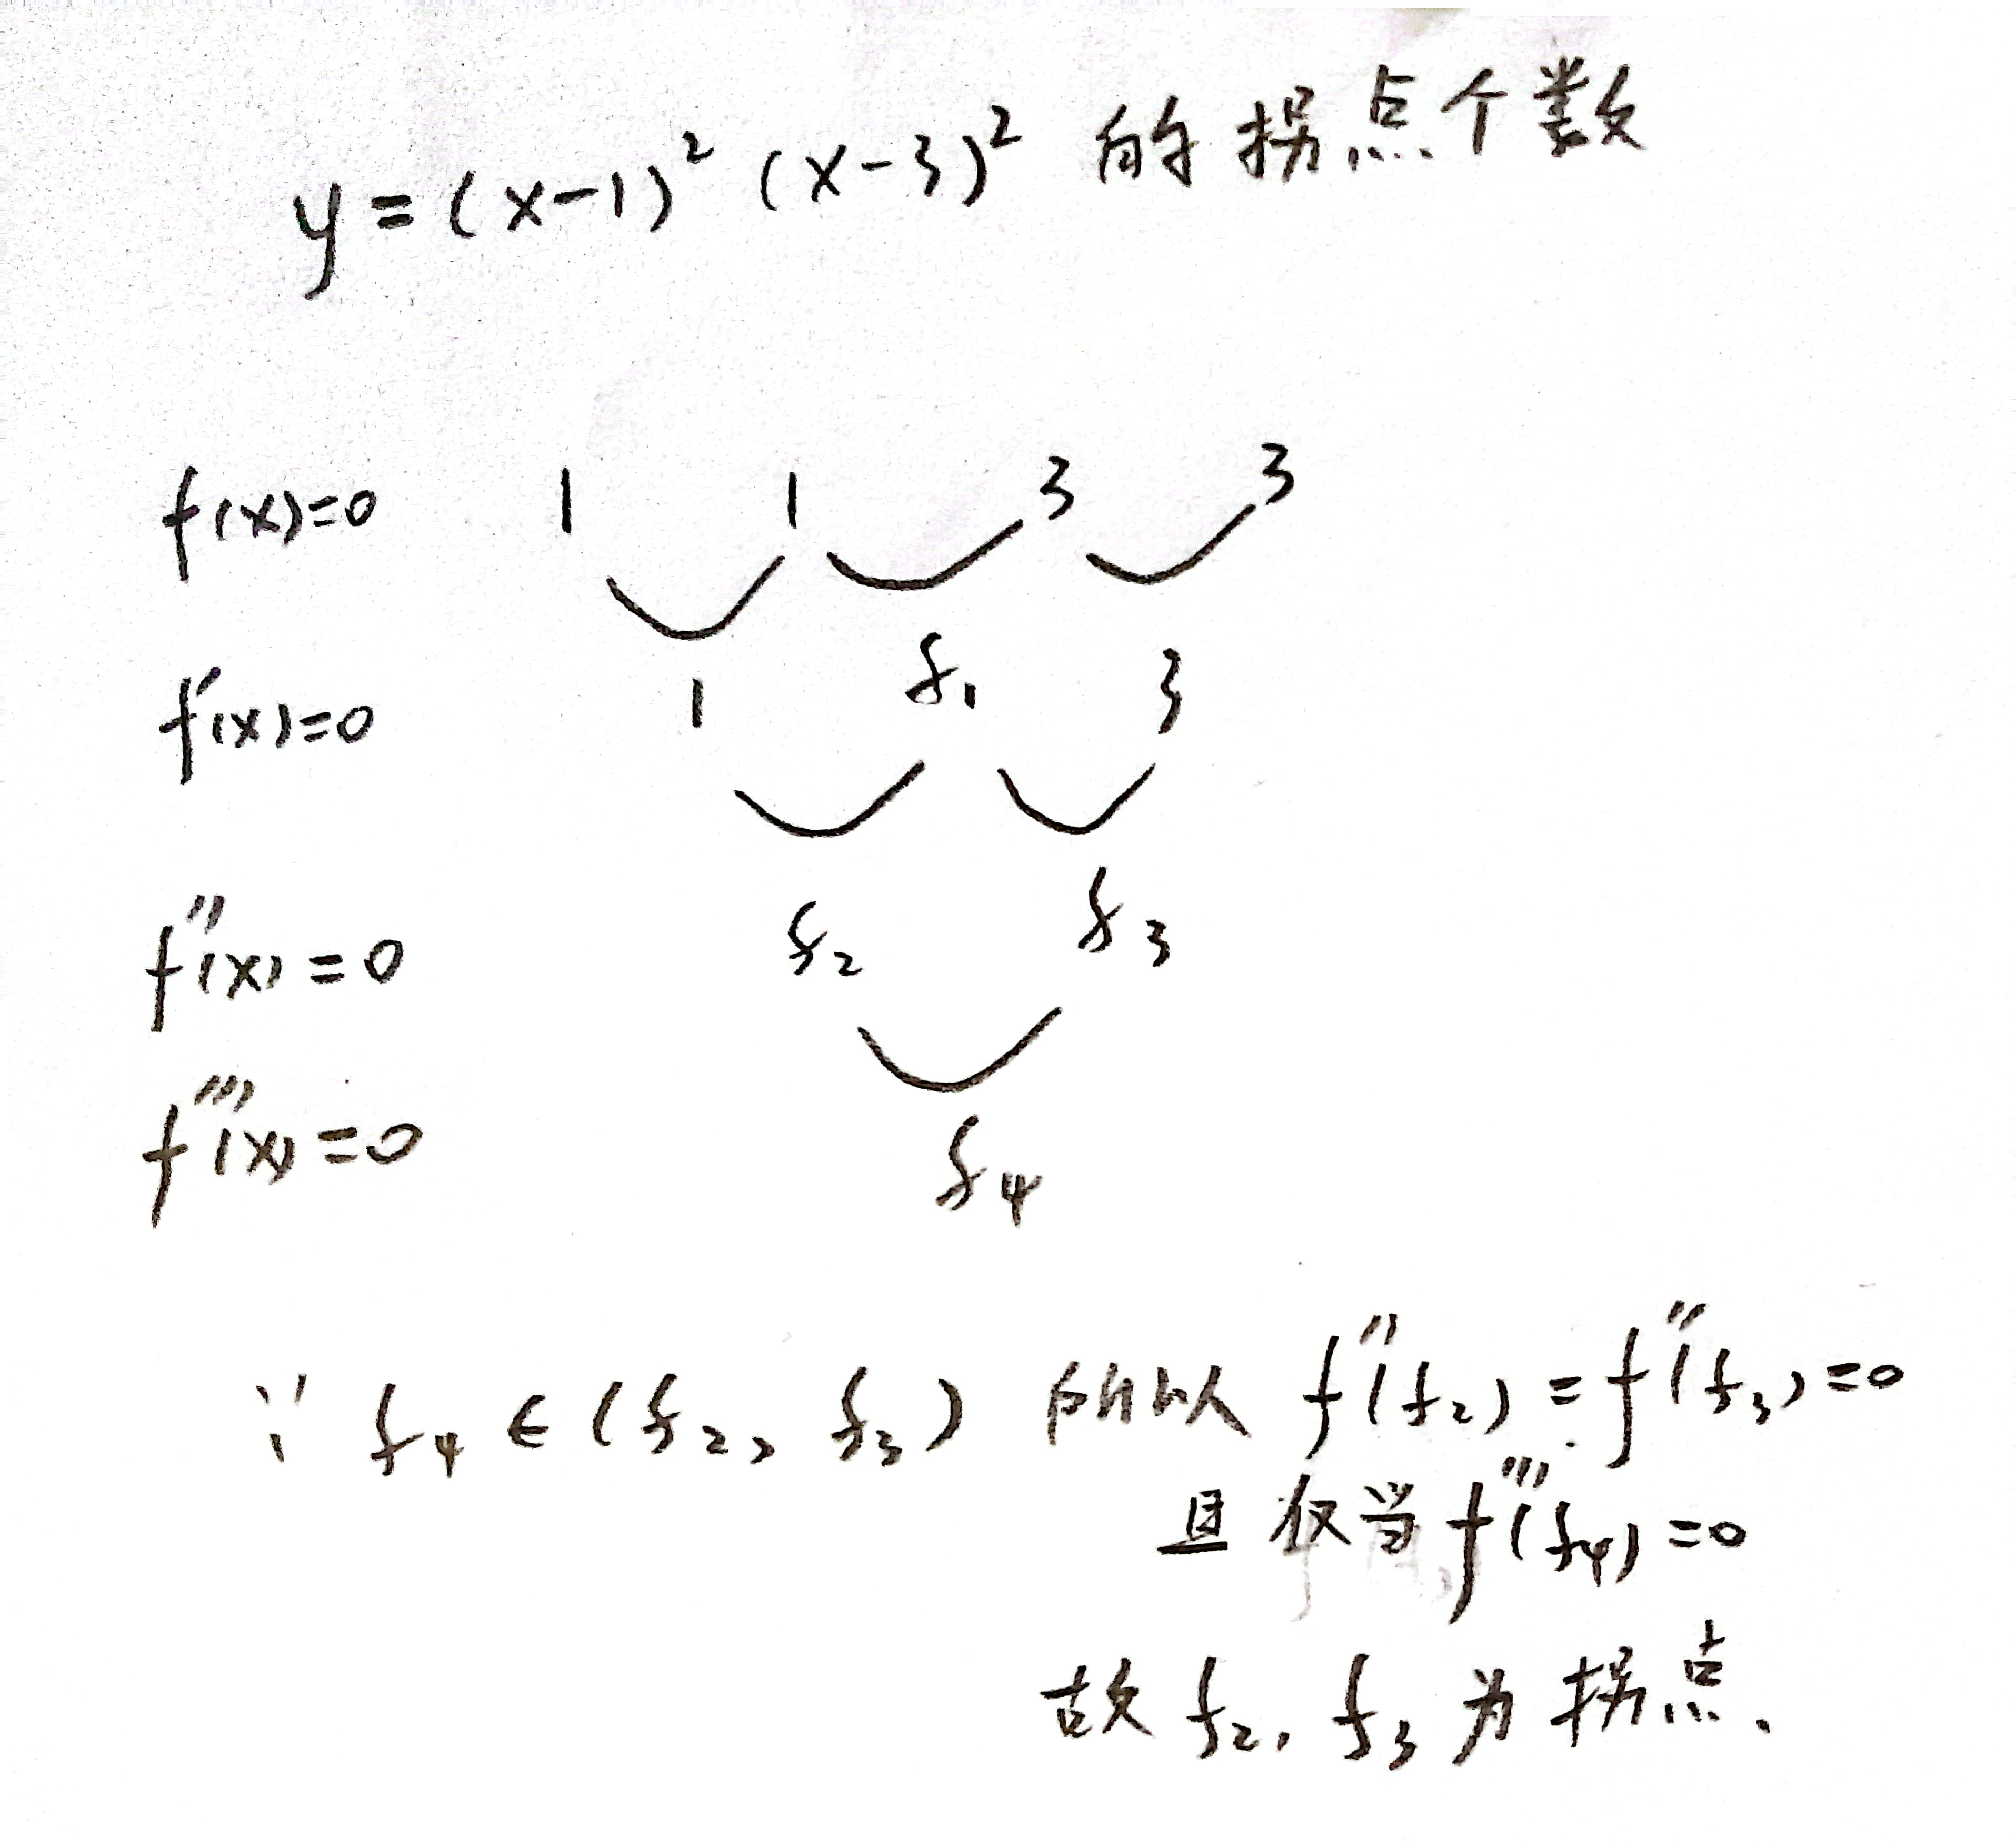 y=(x-1)² (x-3)² 的拐点个数
f(x)=0 1 1 3 3
f'(x)=0 1 ξ₁ 3
f''(x)=0 ξ₂ ξ₃
f'''(x)=0 ξ₄
∵ ξ₄ ∈ (ξ₂, ξ₃) 所以 f''(ξ₂) = f''(ξ₃)=0
且仅当 f'''(ξ₄)=0
故 ξ₂, ξ₃ 为拐点.